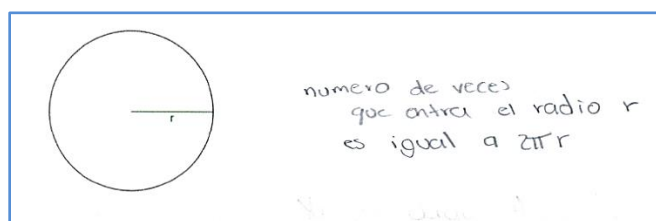 r
numero de veces
que entra el radio r
es igual a 2πr